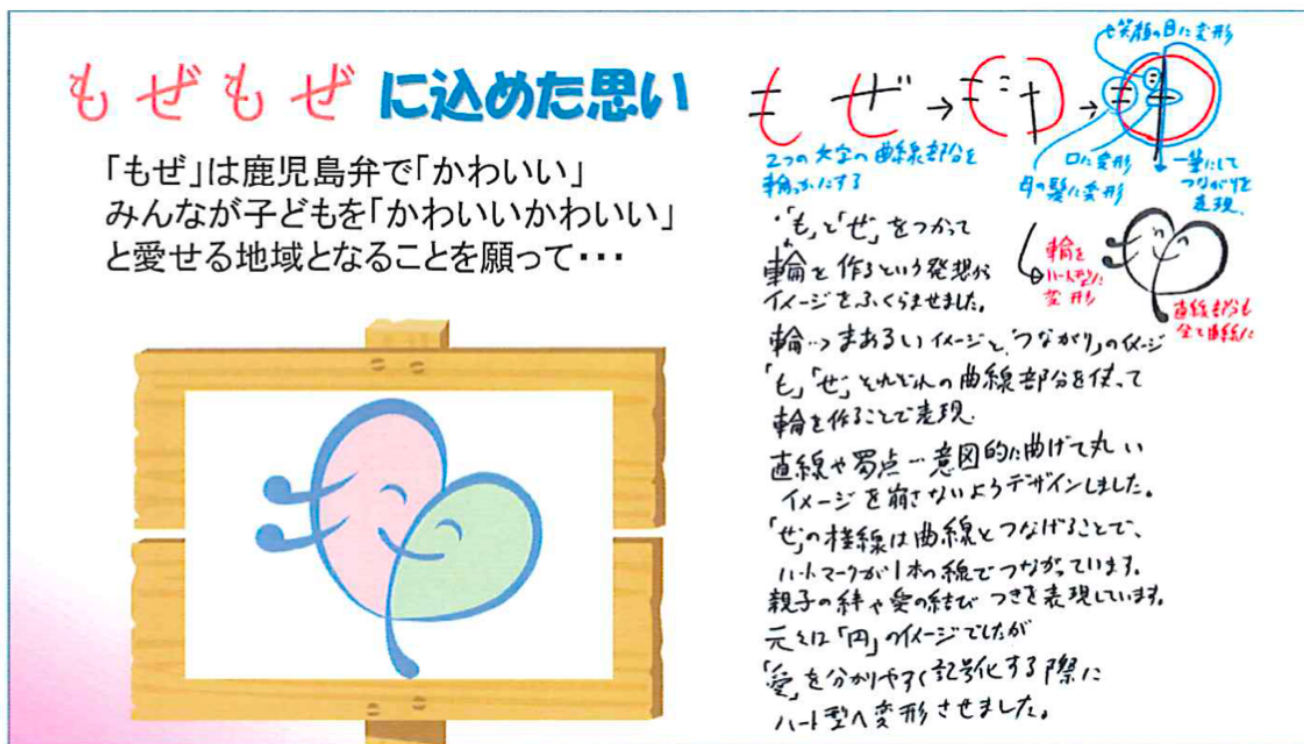 もぜもぜに込めた思い
「もぜ」は鹿児島弁で「かわいい」
みんなが子どもを「かわいいかわいい」
と愛せる地域となることを願って・・・
もぜ
2つの文字の曲線部分を
輪っかにする
笑顔の目に変形
口に変形
母の髪に変形
一筆にして
つながりを
表現.
輪を
ハート型に
変形
直線部分も
全て曲線に
・「も」と「ぜ」をつかって
輪を作るという発想から
イメージをふくらませました。
輪…まあるいイメージと「つながり」のイメージ
「も」「ぜ」それぞれの曲線部分を使って
輪を作ることで表現.
直線や濁点…意図的に曲げて丸い
イメージを崩さないようデザインしました。
「ぜ」の線は曲線とつなげることで、
ハートマークが1本の線でつながっています。
親子の絆や愛の結びつきを表現しています。
元々は「円」のイメージでしたが
「愛」を分かりやすく記号化する際に
ハート型へ変形させました。